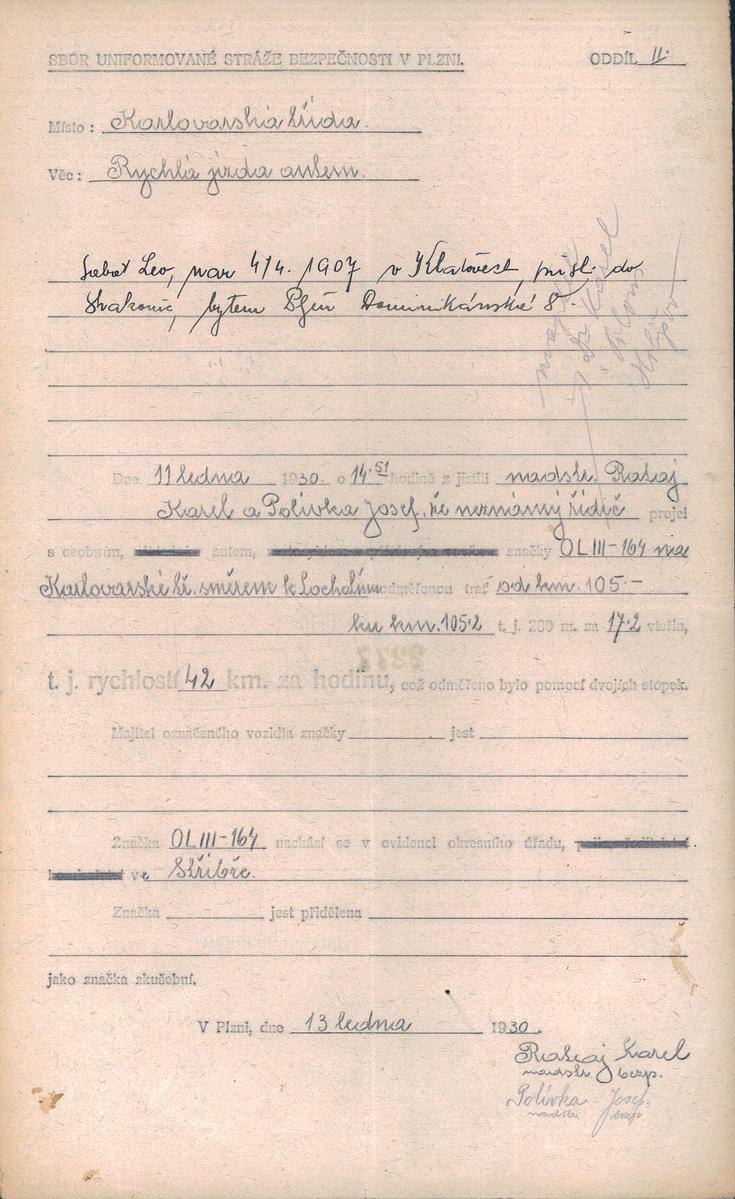 SBOR UNIFORMOVANÉ STRÁŽE BEZPEČNOSTI V PLZNI. ODDÍL II.
Místo: Karlovarská třída.
Věc: Rychlá jízda autem.
Leo, nar 4/4. 1907 v Klatovech, přísl. do
Strakonic, bytem Plzeň Dominikánská 8.
Dne 11 ledna 1930 o 14.51 hodině z jistili nadstr. Rataj
Karel a Polívka Josef, že neznámý řidič projel
s osobním, autem, značky OL III-164 na
Karlovarské tř. směrem k Lochotínu odměřenou trať od km. 105.-
ku km. 105.2 t. j. 200 m. za 17.2 vteřin,
t. j. rychlostí 42 km. za hodinu, což odměřeno bylo pomocí dvojích stopek.
Majitel označeného vozidla značky jest
Značka OL III-164 nachází se v evidenci okresního úřadu,
ve Stříbře.
Značka jest přidělena
jako značka zkušební.
V Plzni, dne 13 ledna 1930.
Rataj Karel
nadstr. bezp.
Polívka Josef,
nadstr. bezp.